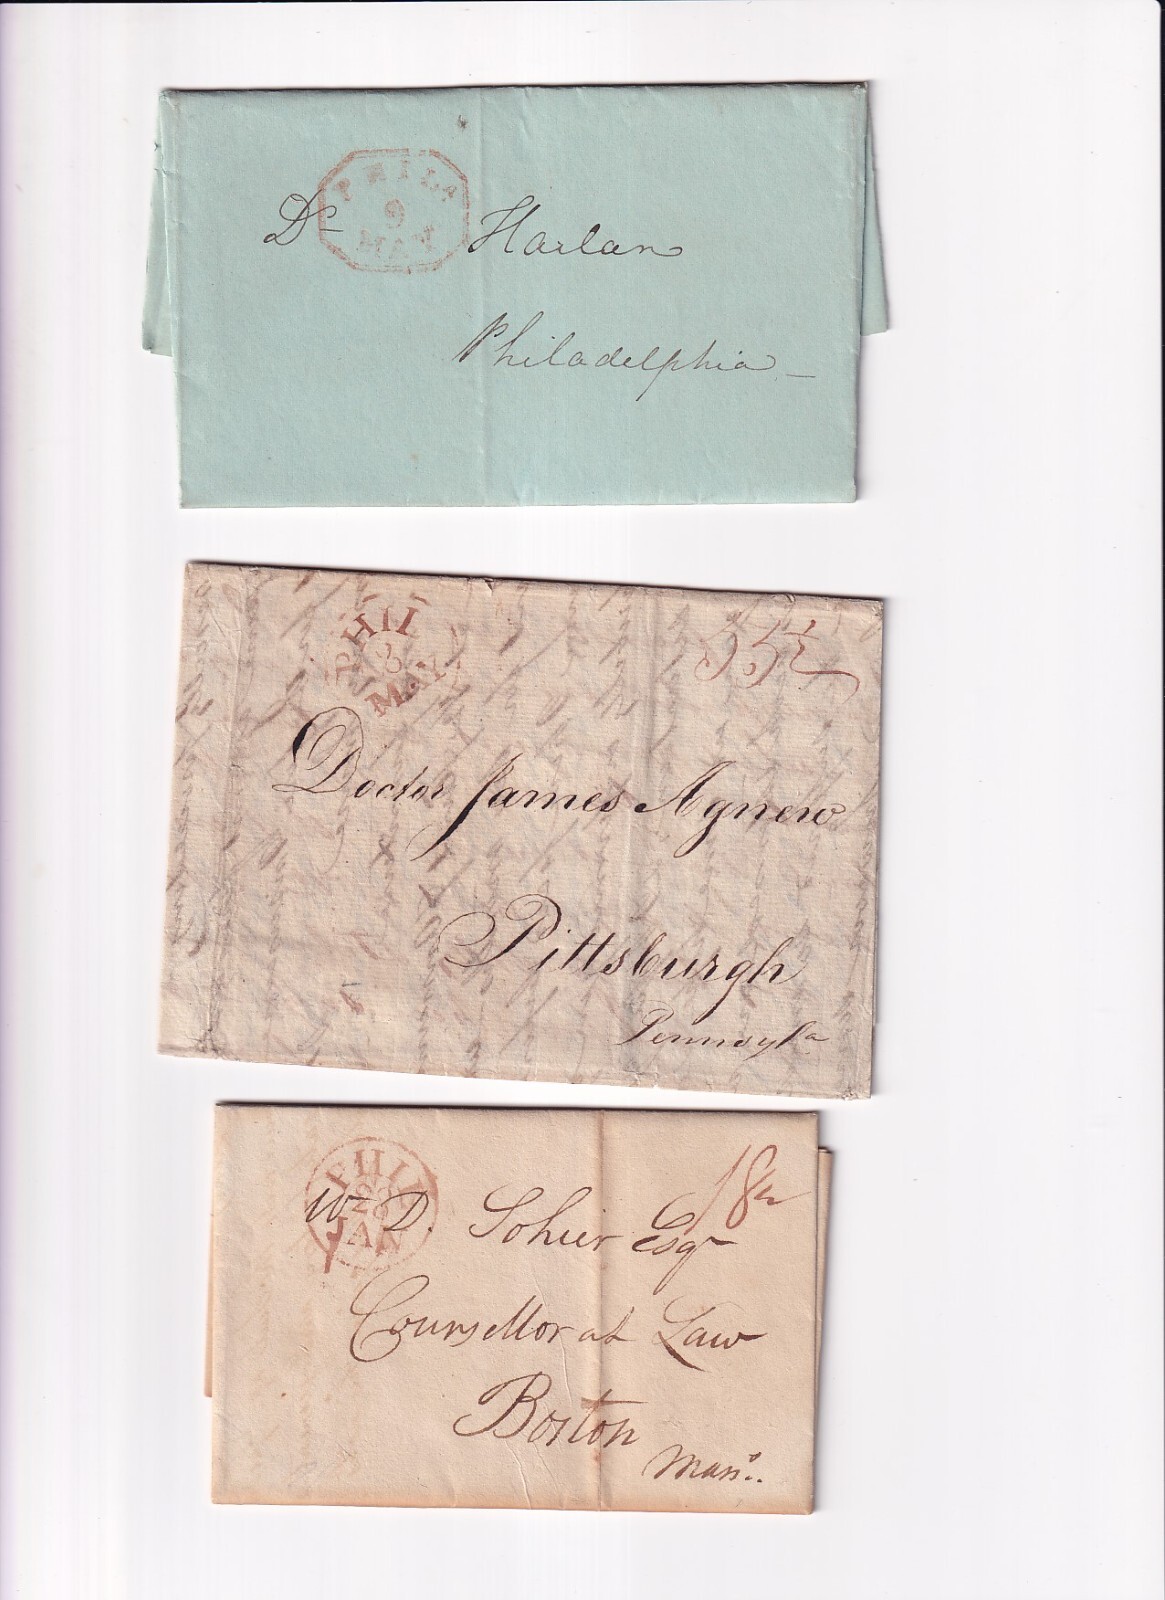 PHILA
9
MAY
Dr Harlan
Philadelphia
PHIL
8
MAY
55½
Doctor James Agnew
Pittsburgh
Pennsyla
PHIL
28
JAN
18¾
W D. Sohier Esqr
Counsellor at Law
Boston
Masss.